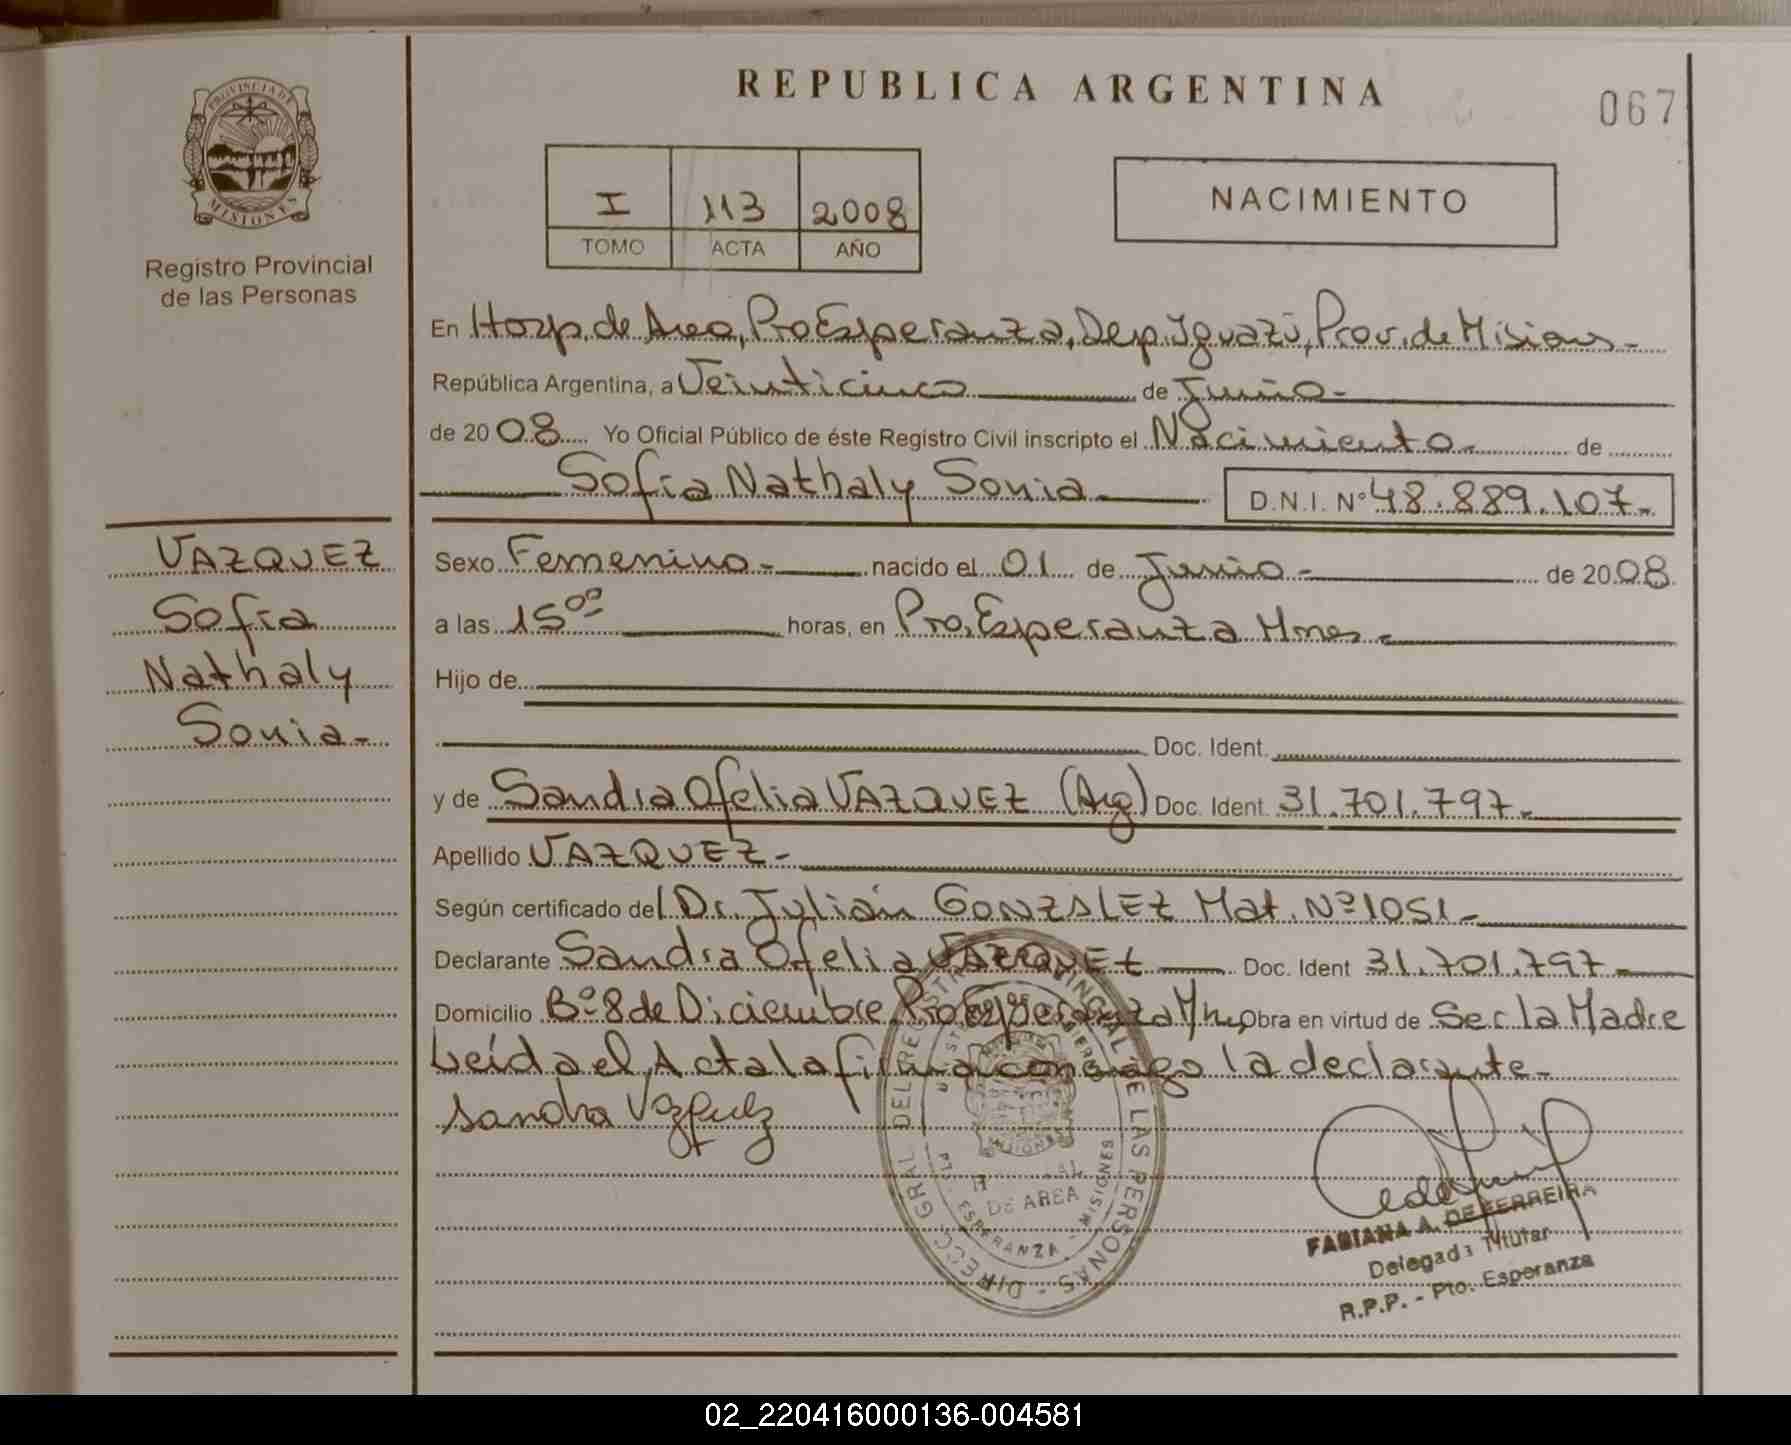 REPUBLICA ARGENTINA
067
PROVINCIA DE
MISIONES
Registro Provincial
de las Personas
I 113 2008
TOMO ACTA AÑO
NACIMIENTO
En Hosp. de Area, Pto Esperanza, Dep. Iguazú, Prov. de Misiones-
República Argentina, a Veinticinco de Junio-
de 20 08 Yo Oficial Público de éste Registro Civil inscripto el Nacimiento- de
Sofía Nathaly Sonia
D.N.I. Nº 48.889.107-
VAZQUEZ
Sofía
Nathaly
Sonia-
Sexo Femenino- nacido el 01 de Junio- de 20 08
a las 15⁰⁰ horas, en Pto. Esperanza Mnes-
Hijo de
Doc. Ident.
y de Sandra Ofelia VAZQUEZ (Arg) Doc. Ident. 31.701.797-
Apellido VAZQUEZ-
Según certificado del Dr. Julián GONZALEZ Mat. Nº 1051-
Declarante Sandra Ofelia VAZQUEZ Doc. Ident 31.701.797-
Domicilio Bº 8 de Diciembre, Pto Esperanza Mnes Obra en virtud de Ser la Madre
Leída el Acta la firma conmigo la declarante-
Sandra Vazquez
DIRECC. GRAL. DEL REGISTRO PROVINCIAL DE LAS PERSONAS
MISIONES
DE AREA
PTO. ESPERANZA - MISIONES
FABIANA A. DE FERREIRA
Delegada Titular
R.P.P. - Pto. Esperanza
02_220416000136-004581